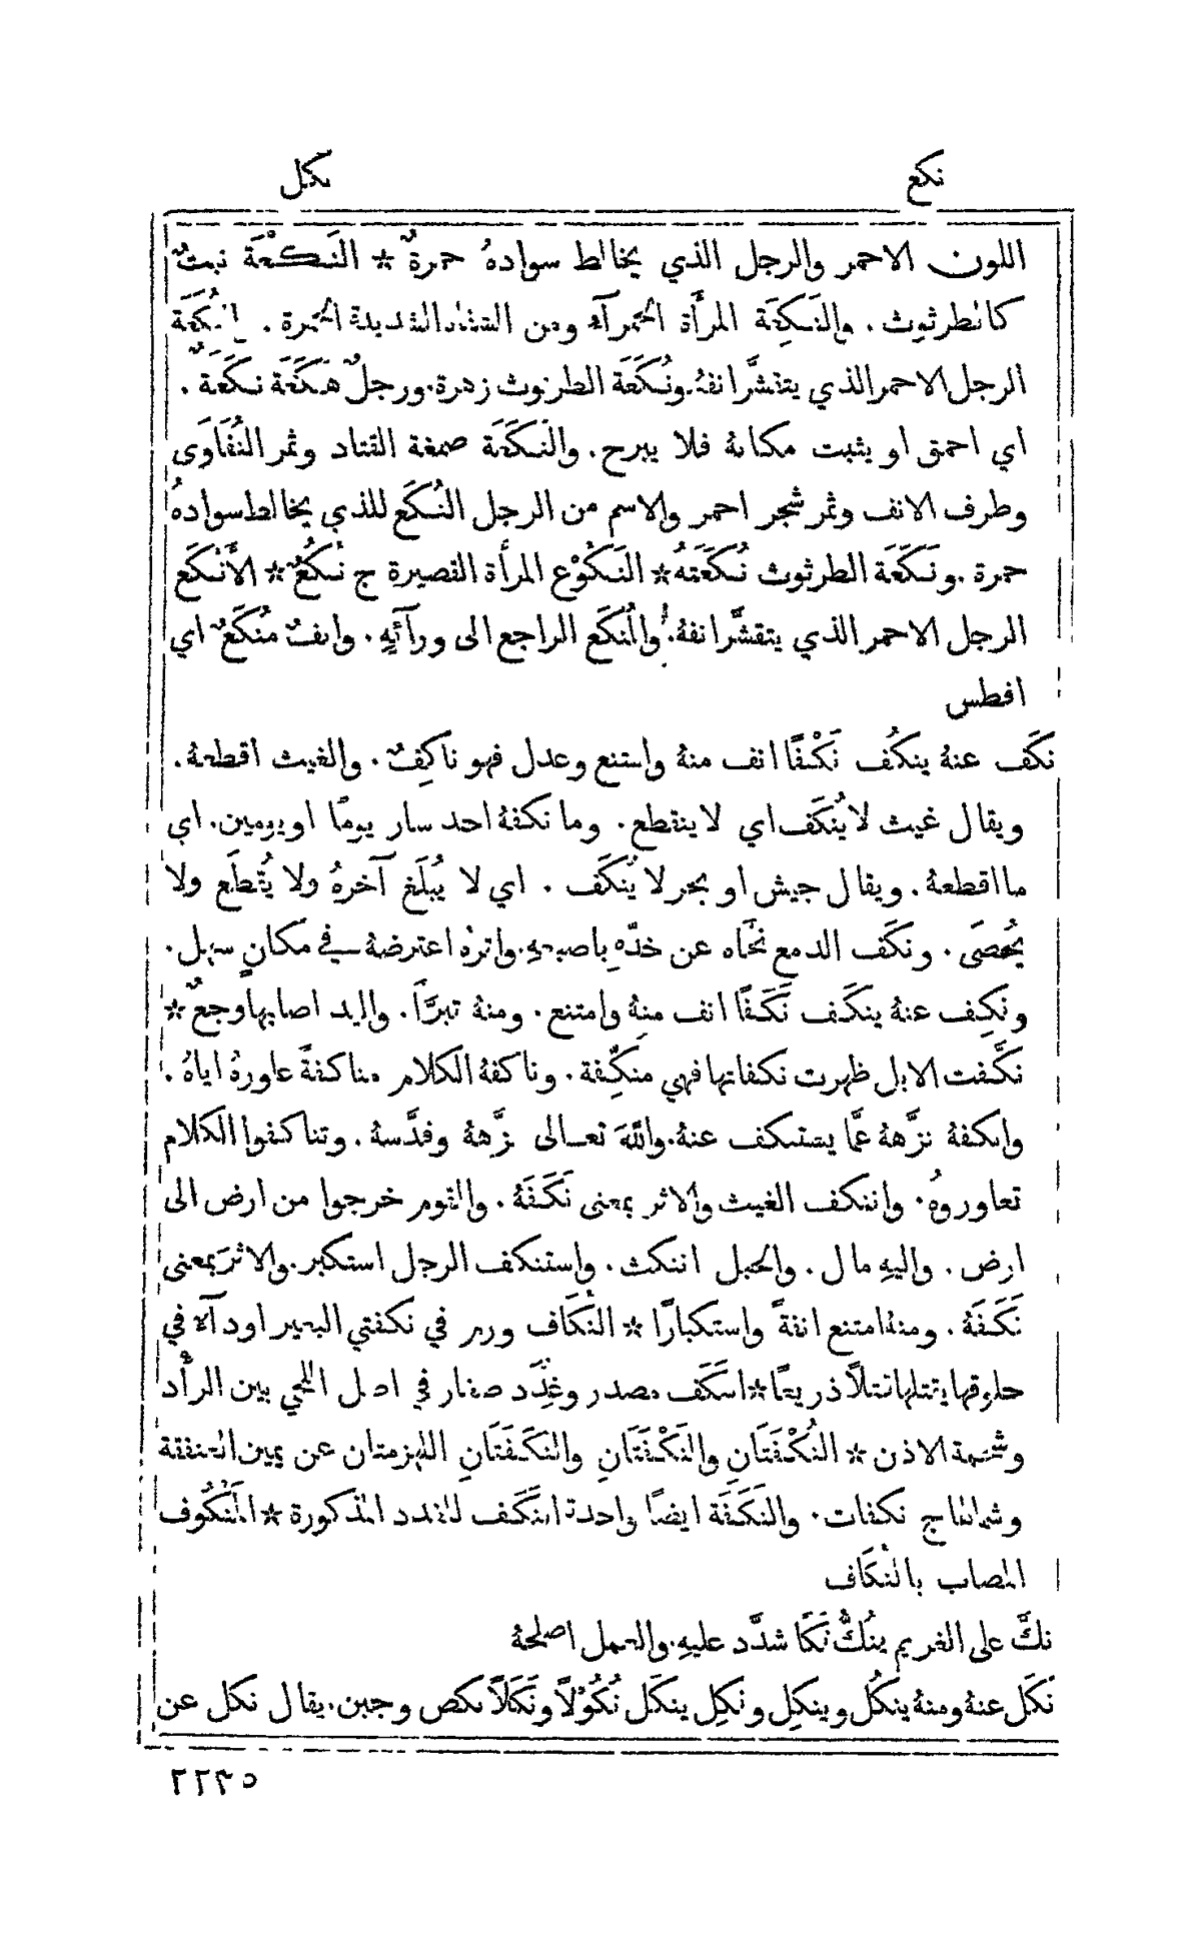 نكع
نكل
اللون الاحمر والرجل الذي يخالط سوادهُ حمرةٌ * النَكْعَة نبتٌ
كالطرثوث. والنَكِعَة المرأَة الحمرآء ومن الشفاه الشديدة الحمرة. والنُكَعَة
الرجل الاحمر الذي يتقشَّر انفهُ. ونُكَعَة الطرثوث زهرة. ورجلٌ هُكَعَة نُكَعَةٌ.
اي احمق او يثبت مكانهُ فلا يبرح. والنَكَعَة صمغة القتاد وثمر النُقَاوَى
وطرف الانف وثمر شجر احمر والاسم من الرجل النُكَع للذي يخالط سوادهُ
حمرة. ونَكَعَة الطرثوث نُكَعَتهُ * النَكُوْع المرأَة القصيرة ج نُكُعٌ * الأَنْكَع
الرجل الاحمر الذي يتقشَّر انفهُ. والمُنكَع الراجع الى ورآئهِ. وانفٌ مُنكَعٌ اي
افطس
نكَف عنهُ ينكُف نَكْفًا انف منهُ وامتنع وعدل فهو ناكِفٌ. والغيث اقطعهُ.
ويقال غيث لا يُنكَف اي لا ينقطع. وما نكفهُ احد سار يومًا او يومين. اي
ما اقطعهُ. ويقال جيش او بحر لا يُنكَف. اي لا يُبلَغ آخرهُ ولا يُقطَع ولا
يُحصَى. ونكَف الدمع نحَّاه عن خدّهِ باصبعهِ. واثرهُ اعترضهُ في مكانٍ سهل.
ونكِف عنهُ ينكَف نَكَفًا انف منهُ وامتنع. ومنهُ تبرَّأَ. واليد اصابها وجعٌ *
نكَّفت الابل ظهرت نكفاتها فهي منكِّفة. وناكفهُ الكلام مناكفةً عاورهُ اياهُ.
وانكفهُ نزَّههُ عمَّا يستنكف عنهُ. واللّٰهَ تعالى نزَّههُ وقدَّسهُ. وتناكفوا الكلام
تعاوروهُ. وانتكف الغيث والاثر بمعنى نَكَفَهُ. والقوم خرجوا من ارض الى
ارض. واليهِ مال. والحبل انتكث. واستنكف الرجل استكبر. والاثرَ بمعنى
نَكَفَهُ. ومنهُ امتنع انفةً واستكبارًا * النُكَاف ورم في نكفتي البعير او دآء في
حلوقها يقتلها قتلًا ذريعًا * النَكَف مصدر وغُدَد صغار في اصل اللحي بين الرأد
وشحمة الاذن * النُكْفَتَانِ والنَكْفَتَانِ والنَكَفَتَانِ اللهزمتان عن يمين العنفقة
وشمالها ج نكفات. والنَكَفَة ايضًا واحدة النَكَف للغدد المذكورة * المَنْكُوف
المصاب بالنُكَاف
نكَّ على الغريم ينُكُّ نَكًّا شدَّد عليهِ. والعمل اصلحهُ
نكَل عنهُ ومنهُ ينكُل وينكِل ونكِل ينكَل نُكُوْلًا ونَكَلًا نكص وجبن. يقال نكل عن
٢٢٣٥